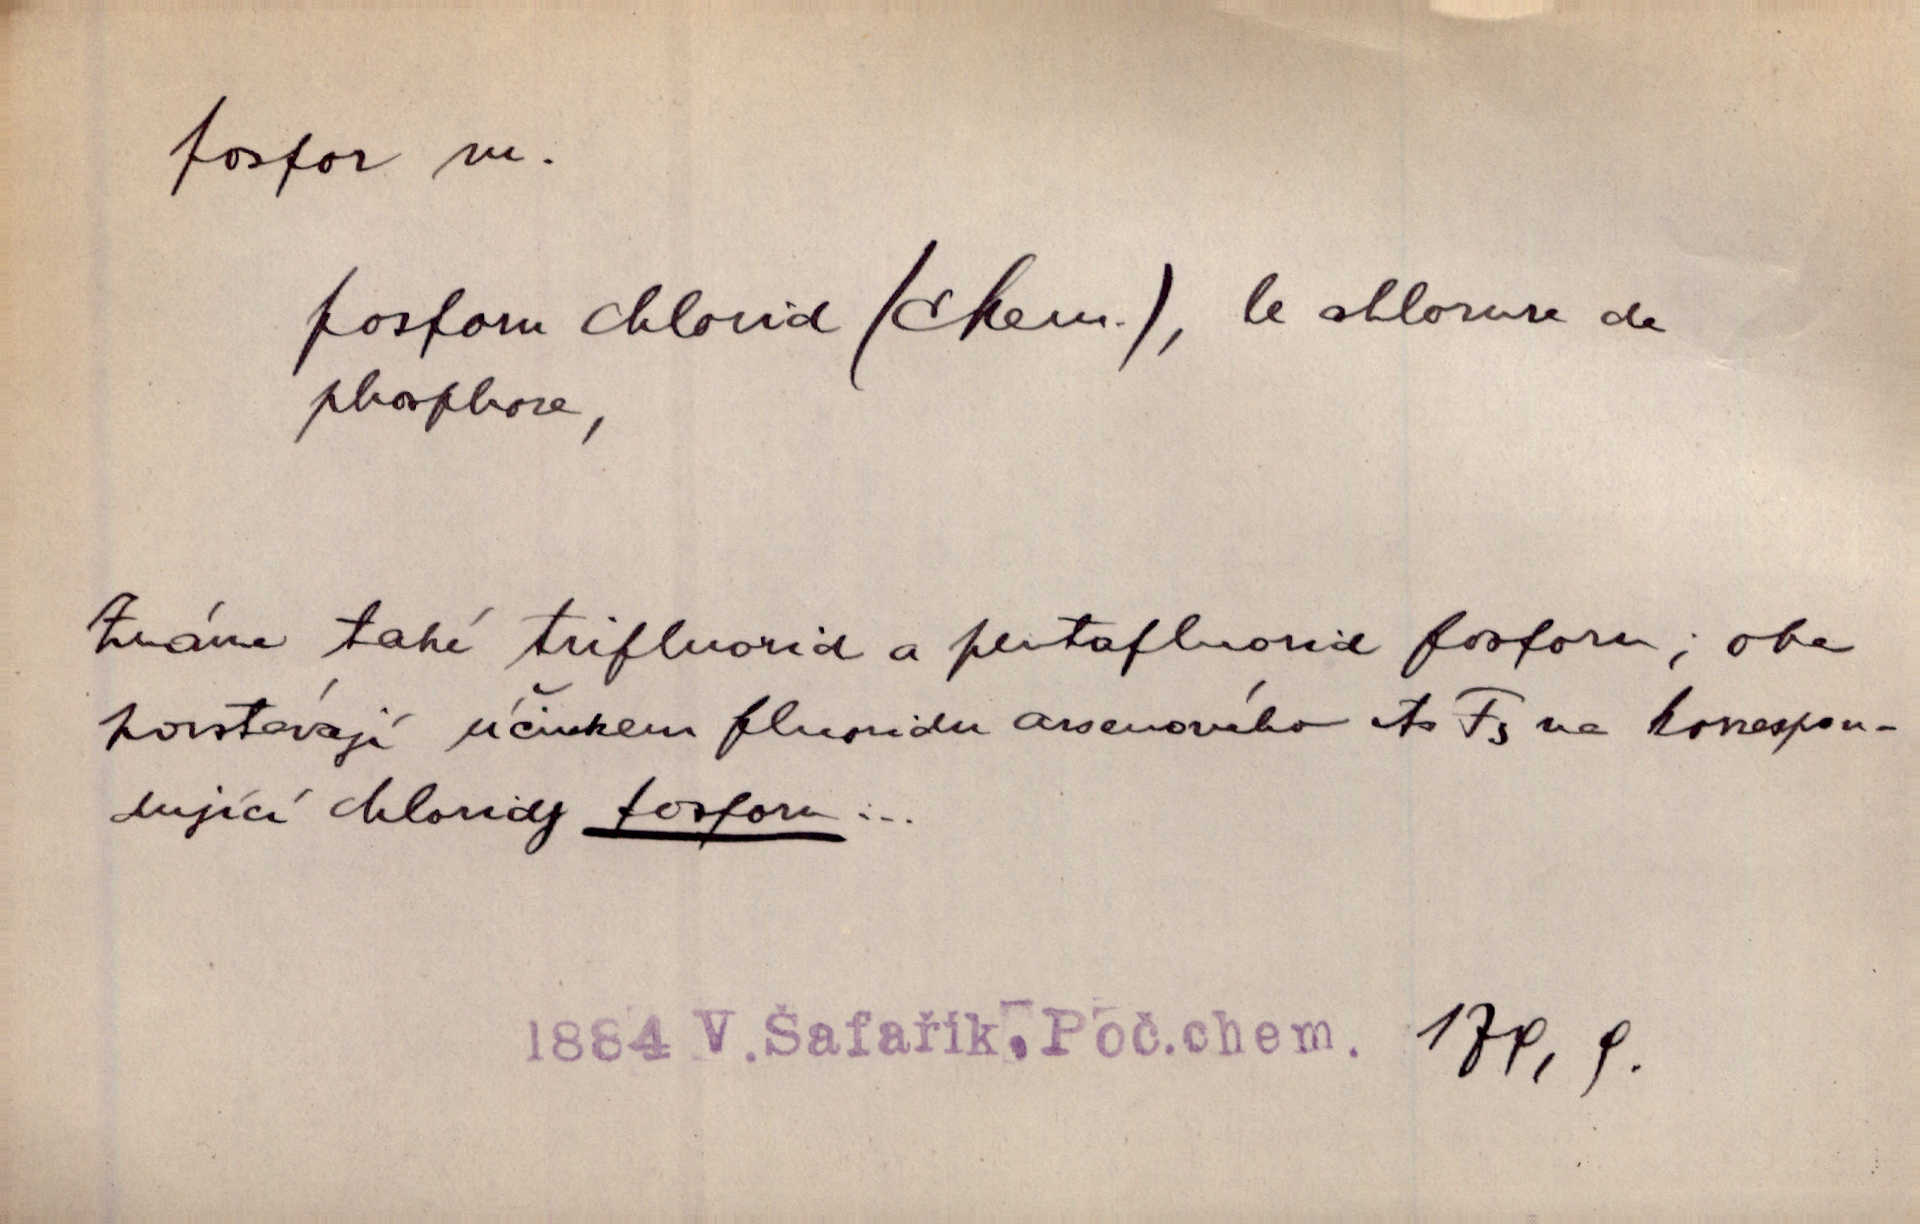 fosfor m.
fosforu chlorid (chem.), le chlorure de
phosphore,
Známe také trifluorid a pentafluorid fosforu; oba
povstávají účinkem fluoridu arsenového As F5 na korrespon-
dující chloridy fosforu ...
1884 V.Šafařík.Poč.chem.